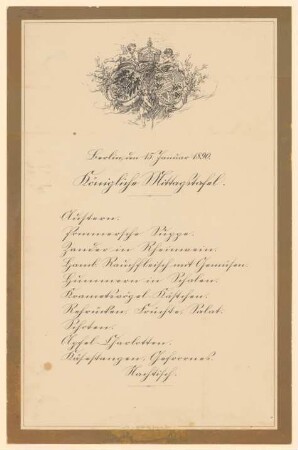 Berlin, den 15. Januar 1890.
Königliche Mittagstafel.
Austern.
Pommersche Suppe.
Zander in Rheinwein.
Hamb. Rauchfleisch mit Gemüsen.
Hummern in Schalen.
Krametsvögel-Kästchen.
Rehrücken. Früchte. Salat.
Apfel-Charlotten.
Käsestangen. Gefrornes.
Nachtisch.